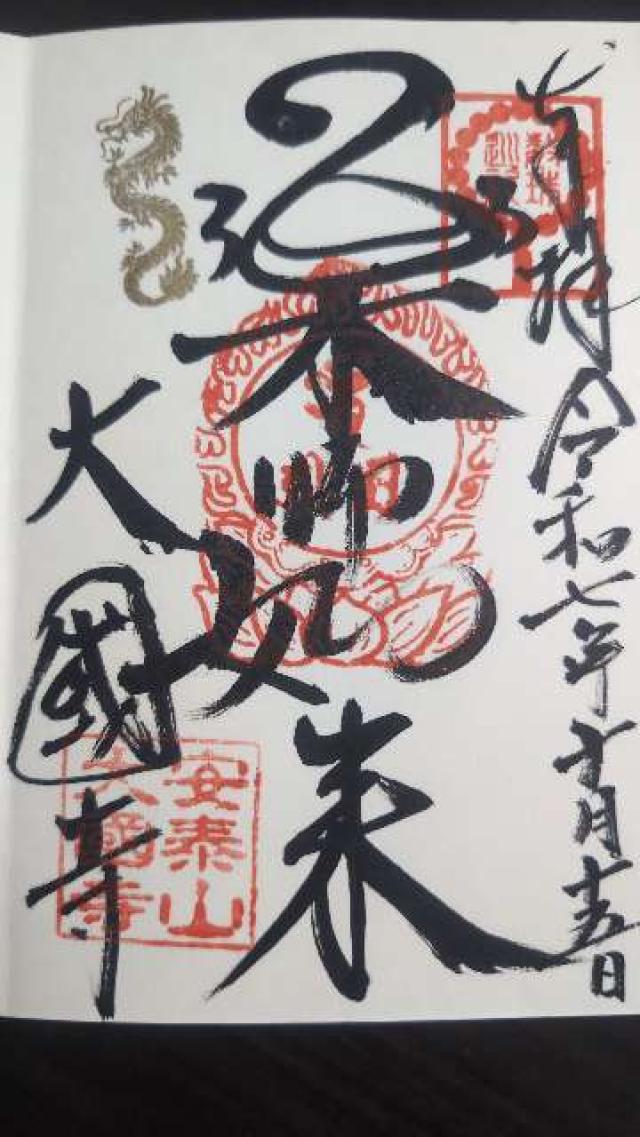 奉拝 令和七年十月十五日
薬師如来
大國寺
安泰山
大國寺